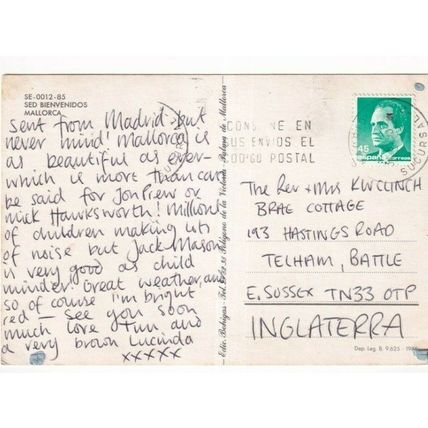 SE-0012-85
SED BIENVENIDOS
MALLORCA
Sent from Madrid but
never mind! Mallorca is
as beautiful as ever -
which is more than can
be said for Jon Prew or
Mick Hawksworth! Million
of children making lots
of noise but Jack Mason
is very good as child
minder. Great weather, and
so of course I'm bright
red - see you soon
much love Tim and
a very brown Lucinda
xxxxx
CONSIGNE EN
SUS ENVIOS EL
CODIGO POSTAL
45
españa
correos
SUCURSAL
The Rev + Mrs K W CLINCH
BRAE COTTAGE
193 HASTINGS ROAD
TELHAM, BATTLE
E. SUSSEX TN33 0TP
INGLATERRA
Dep. Leg. B. 9.625 -